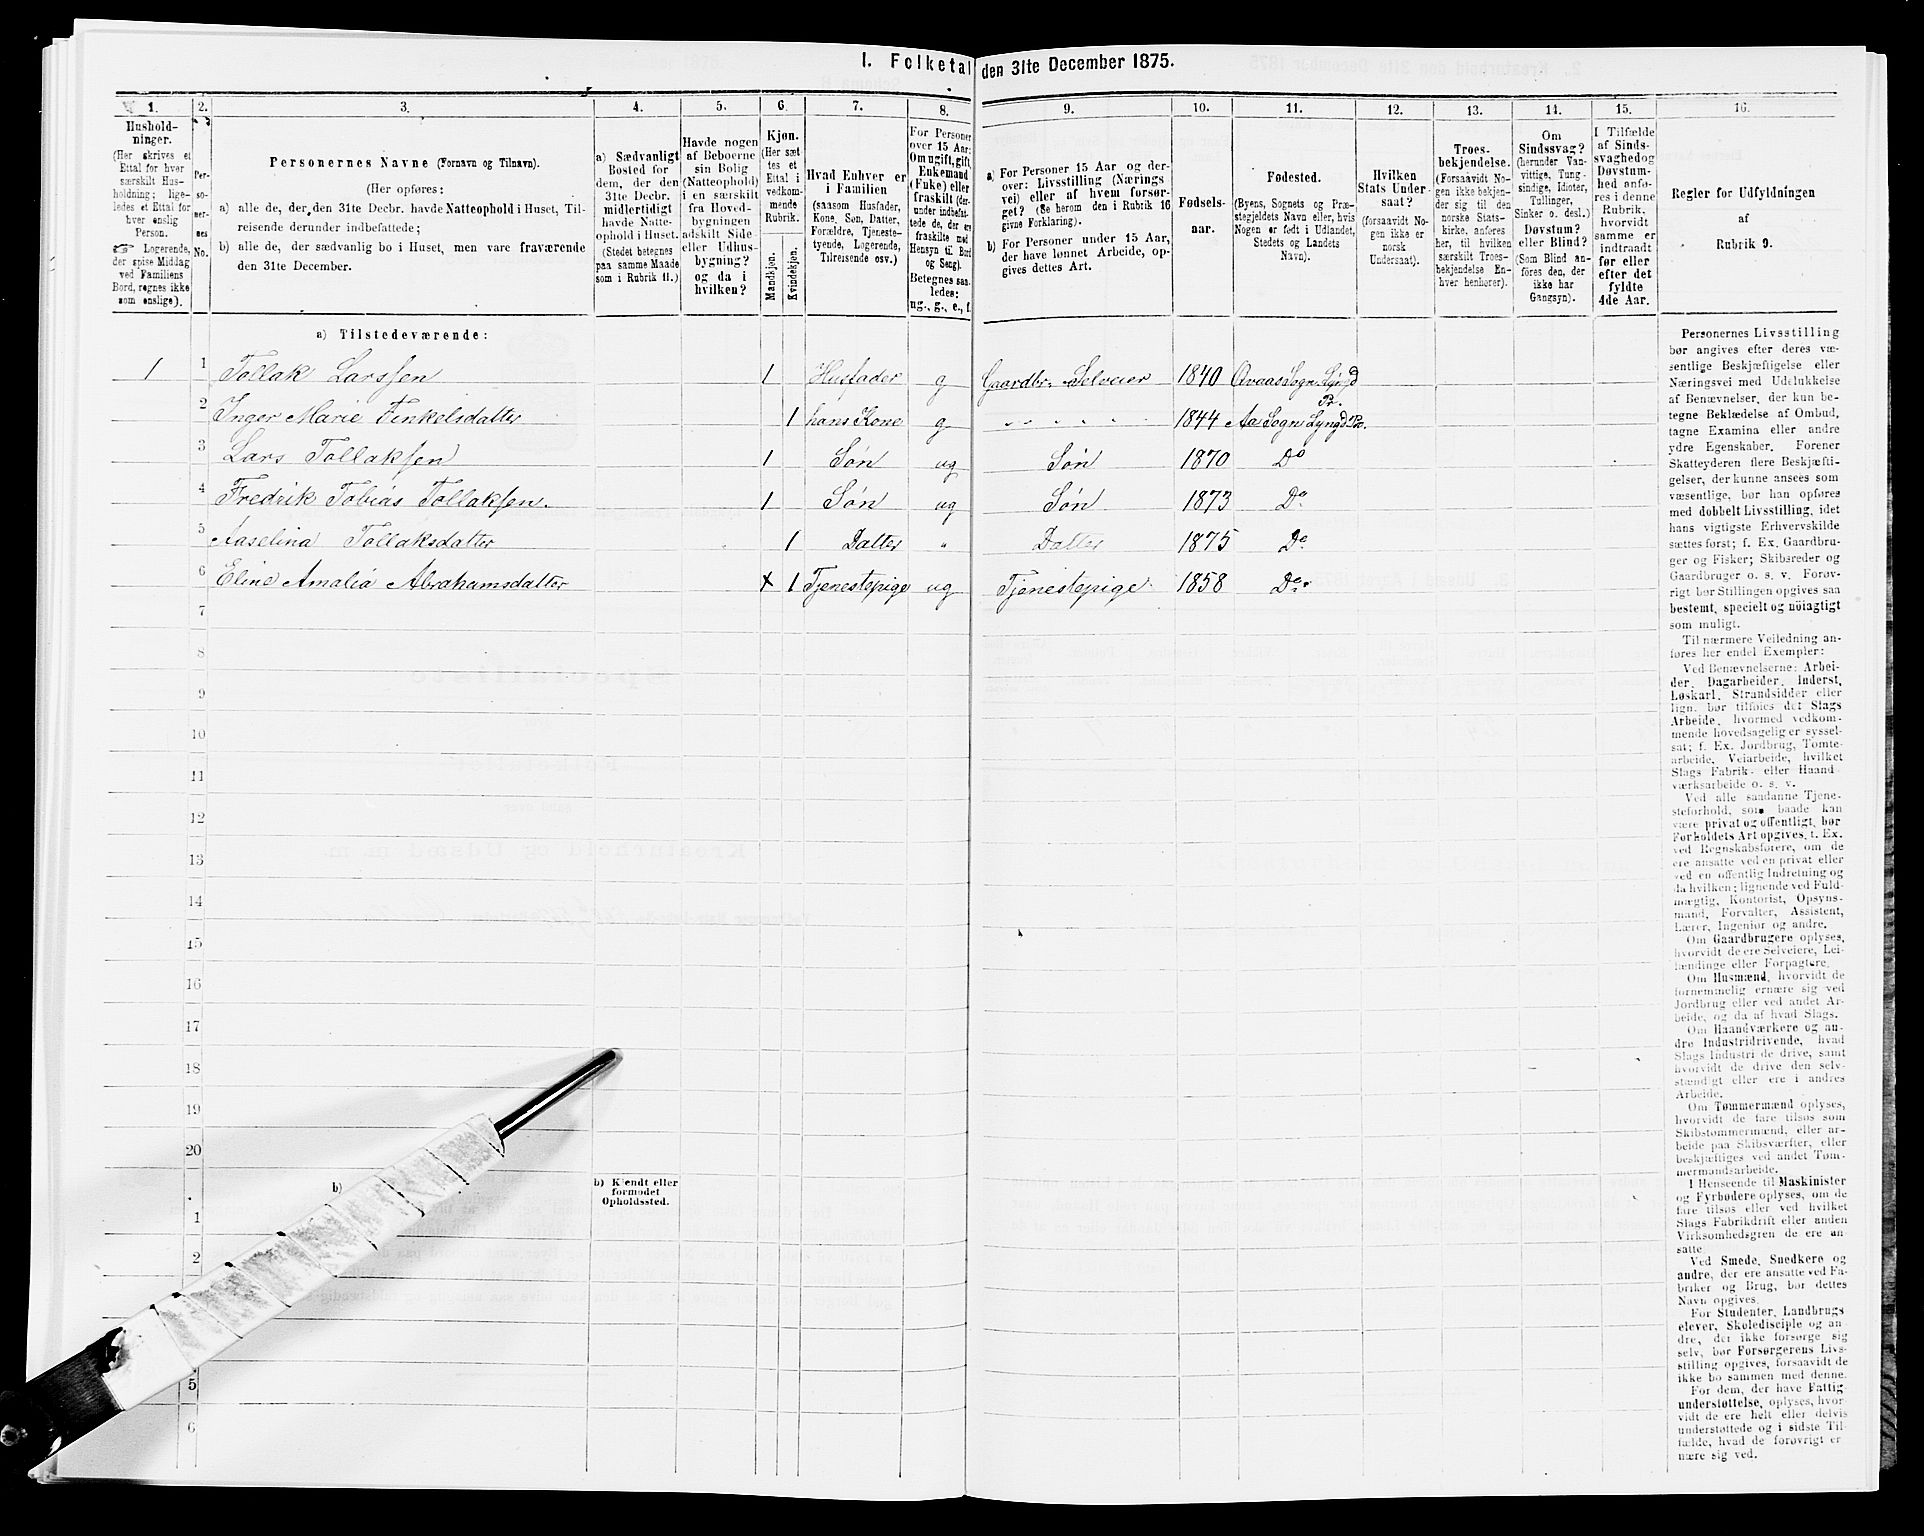 I. Folketal den 31te December 1875.
1. 2. 3. 4. 5. 6. 7. 8. 9. 10. 11. 12. 13. 14. 15. 16.
Hushold-
ninger.
(Her skrives et
Ettal for hver
særskilt Hus-
holdning; lige-
ledes et Ettal for
hver enslig
Person.
☞ Logerende,
der spise Middag
ved Familiens
Bord, regnes ikke
som enslige).
Per-
so-
ner-
nes
No.
Personernes Navne (Fornavn og Tilnavn).
(Her opføres:
a) alle de, der den 31te Decbr. havde Natteophold i Huset, Til-
reisende derunder indbefattede;
b) alle de, der sædvanlig bo i Huset, men vare fraværende
den 31te December.
a) Sædvanligt
Bosted for
dem, der den
31te Decbr.
midlertidigt
havde Natte-
ophold i Huset.
(Stedet betegnes
paa samme Maade
som i Rubrik 11.)
Havde nogen
af Beboerne
sin Bolig
(Natteophold)
i en særskilt
fra Hoved-
bygningen
adskilt Side
eller Udhus-
bygning?
og da i
hvilken?
Kjøn.
(Her sæt
tes et
Ettal i
vedkom-
mende
Rubrik.
Mandkjøn.
Kvindekjøn.
Hvad Enhver er
i Familien
(saasom Husfader,
Kone, Søn, Datter,
Forældre, Tjeneste-
tyende, Logerende,
Tilreisende osv.)
For Personer
over 15 Aar:
Om ugift, gift,
Enkemand
(Enke) eller
fraskilt (der-
under indbefat-
tede de, der ere
fraskilte med
Hensyn til Bord
og Seng).
Betegnes saa-
ledes:
ug., g., e., f.
a) For Personer 15 Aar og der-
over: Livsstilling (Nærings-
vei) eller af hvem forsør-
get? (Se herom den i Rubrik 16
givne Forklaring).
b) For Personer under 15 Aar,
der have lønnet Arbeide, op-
gives dettes Art.
Fødsels-
aar.
Fødested.
(Byens, Sognets og Præ-
stegjeldets Navn eller, hvis
Nogen er født i Udlandet,
Stedets og Landets
Navn).
Hvilken
Stats Under-
saat?
(forsaavidt No-
gen ikke er
norsk
Undersaat).
Troes-
bekjendelse.
(Forsaavidt No-
gen ikke bekjen-
der sig til den
norske Stats-
kirke, anføres
her, til hvilken
særskilt Troes-
bekjendelse En-
hver henhører).
Om
Sindssvag?
(herunder Van-
vittige, Tung-
sindige, Idioter,
Tullinger,
Sinker o. desl.)
Døvstum?
eller Blind?
(Som Blind an-
føres den, der
ikke har
Gangsyn).
I Tilfælde
af Sinds-
svaghed og
Døvstum-
hed anfø-
res i denne
Rubrik,
hvorvidt
samme er
indtraadt
før eller
efter det
fyldte
4de Aar.
Regler for Udfyldningen
af
Rubrik 9.
a) Tilstedeværende:
1 1 Tollak Larssen 1 Husfader g Gaardbr. Selveier 1840 Qvaas Sogn Lyngd Pr.
2 Inger Marie Finkelsdatter 1 hans Kone g " " " " 1844 Aa Sogn Lyngd Pr.
3 Lars Tollaksen 1 Søn ug Søn 1870 Do
4 Fredrik Tobias Tollaksen. 1 Søn ug Søn 1873 Do
5 Aaselina Tollaksdatter 1 Datter " Datter 1875 Do
6 Eline Amalia Abrahamsdatter 1 Tjenestepige ug Tjenestepige 1858 Do
7
8
9
10
11
12
13
14
15
16
17
18
19
20
b)
b) Kjendt eller
formodet
Opholdssted.
1
2
5
6
Personernes Livsstilling
bør angives efter deres væ-
sentlige Beskjæftigelse eller
Næringsvei med Udelukkelse
af Benævnelser, der kun be-
tegne Beklædelse af Ombud,
tagne Examina eller andre
ydre Egenskaber. Forener
Skatteyderen flere Beskjæfti-
gelser, der kunne ansees som
væsentlige, bør han opføres
med dobbelt Livsstilling, idet
hans vigtigste Erhvervskilde
sættes først; f. Ex. Gaardbru-
ger og Fisker; Skibsreder og
Gaardbruger o. s. v. Forøv-
rigt bør Stillingen opgives saa
bestemt, specielt og nöiagtigt
som muligt.
Til nærmere Veiledning an-
føres her endel Exempler:
Ved Benævnelserne: Arbei-
der, Dagarbeider, Inderst,
Løskarl, Strandsidder eller
lign. bør tilføies det Slags
Arbeide, hvormed vedkom-
mende hovedsagelig er syssel-
sat; f. Ex. Jordbrug, Tomte-
arbeide, Veiarbeide, hvilket
Slags Fabrik- eller Haand-
værksarbeide o. s. v.
Ved alle saadanne Tjene-
steforhold, som baade kan
være privat og offentligt, bør
Forholdets Art opgives, t. Ex.
ved Regnskabsførere, om de
ere ansatte ved en privat eller
ved en offentlig Indretning og
da hvilken; lignende ved Fuld-
mægtig, Kontorist, Opsyns-
mand, Forvalter, Assistent,
Lærer, Ingeniør og andre.
Om Gaardbrugere oplyses,
hvorvidt de ere Selveiere, Lei-
lændinge eller Forpagtere.
Om Husmænd, hvorvidt de
fornemmelig ernære sig ved
Jordbrug eller ved andet Ar-
beide, og da af hvad Slags.
Om Haandværkere og an-
dre Industridrivende, hvad
Slags Industri de drive, samt
hvorvidt de drive den selv-
stændigt eller ere i andres
Arbeide.
Om Tømmermænd oplyses,
hvorvidt de fare tilsøs som
Skibstømmermænd, eller ar-
beide paa Skibsværfter, eller
beskjæftiges ved andet Tøm-
mermandsarbeide.
I Henseende til Maskinister
og Fyrbødere oplyses, om de
fare tilsøs eller ved hvilket
Slags Fabrikdrift eller anden
Virksomhedsgren de ere an-
satte.
Ved Smede, Snedkere og
andre, der ere ansatte ved Fa-
briker og Brug, bør dettes
Navn opgives.
For Studenter, Landbrugs-
elever, Skoledisciple og an-
dre, der ikke forsørge sig
selv, bør Forsørgerens Livs-
stilling opgives, forsaavidt de
ikke bo sammen med denne.
For dem, der have Fattig-
understøttelse, oplyses, hvor-
vidt de ere helt eller delvis
understøttede og i sidste Til-
fælde, hvad de forøvrigt er-
nære sig ved.